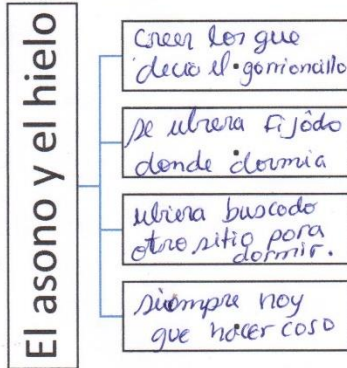 El asono y el hielo
creer los que
decia el gorrioncillo
se ubiera fijado
donde dormia
ubiera buscado
otro sitio para
dormir.
siempre hay
que hacer caso